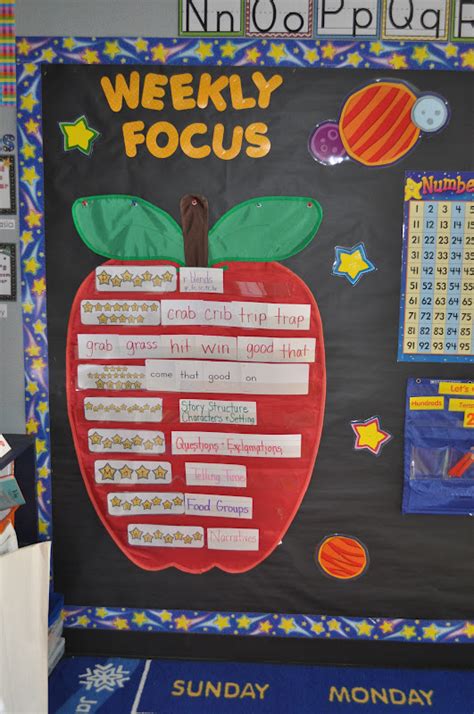 Nn Oo Pp Qq
WEEKLY
FOCUS
Number
1 2 3 4 5
11 12 13 14 15
21 22 23 24 25
31 32 33 34 35
41 42 43 44 45
51 52 53 54 55
61 62 63 64 65
71 72 73 74 75
81 82 83 84 85
91 92 93 94 95
r blends
crab crib trip trap
grab grass hit win good that
come that good on
Story Structure
Characters + Setting
Questions + Explamations
Telling Time
Food Groups
Narratives
Let's
Hundreds
SUNDAY MONDAY
Ja